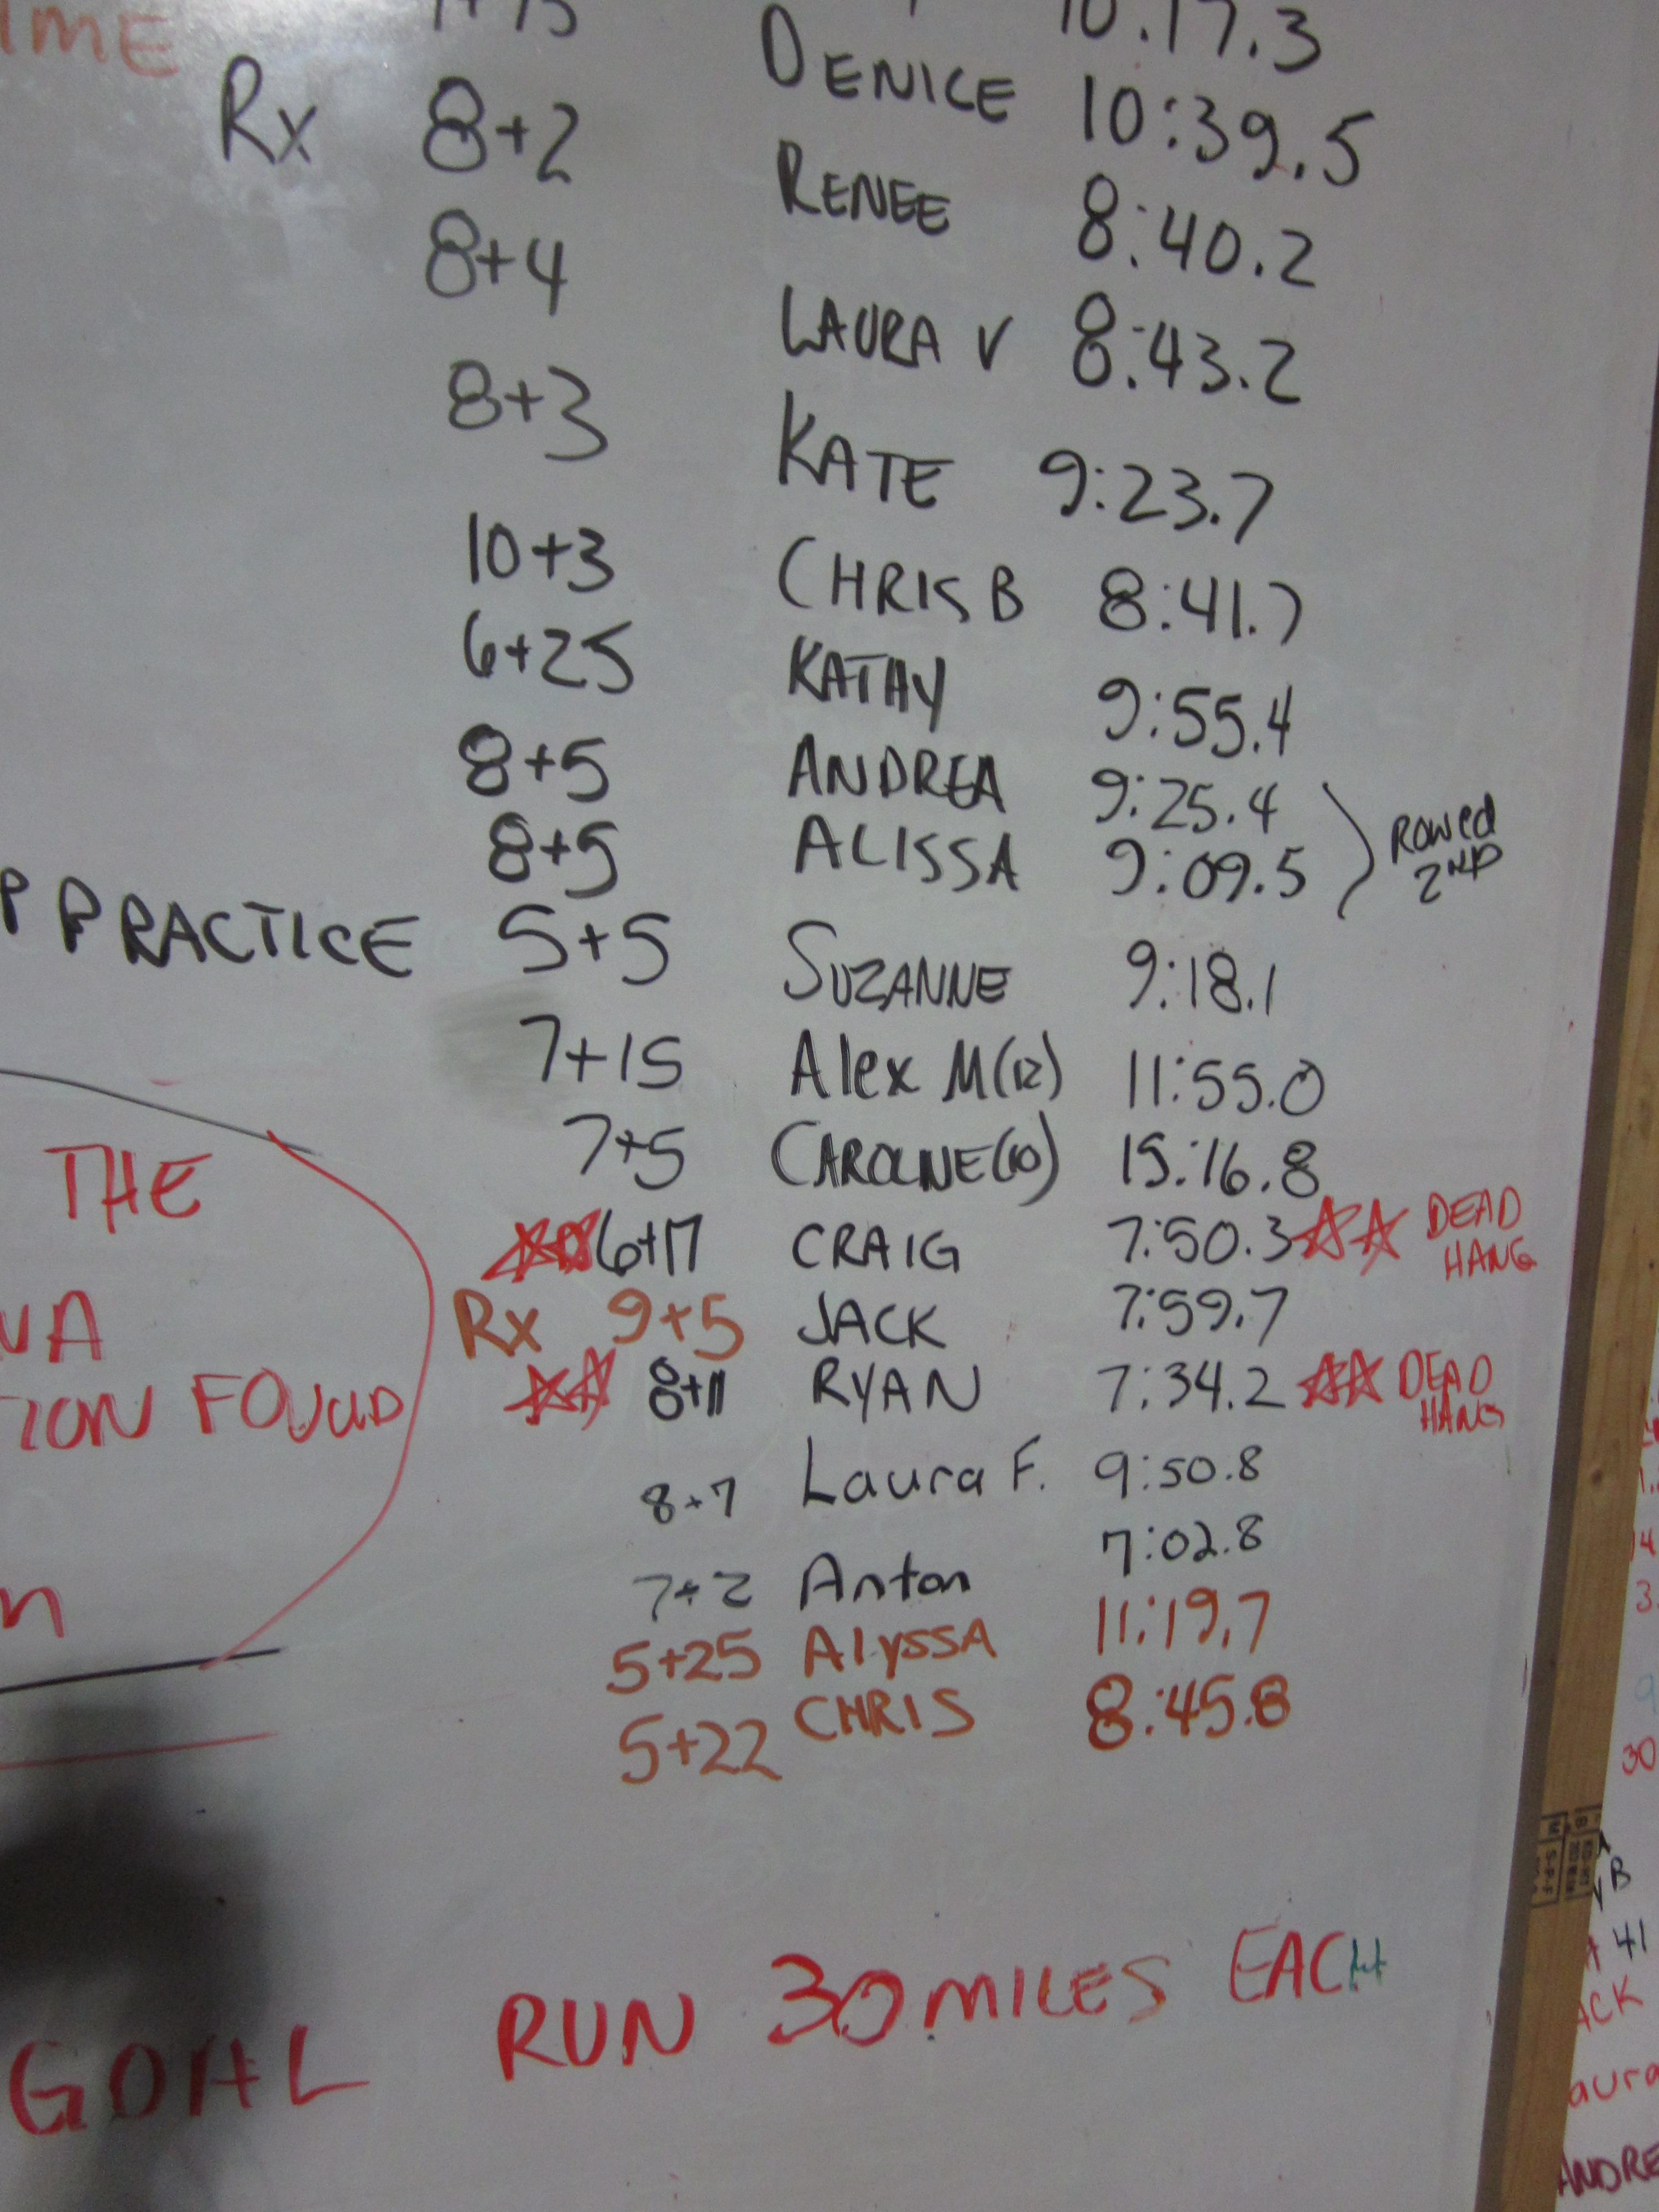 IME
10.17.3
Rx 8+2 DENICE 10:39.5
8+4 RENEE 8:40.2
8+3 LAURA V 8:43.2
KATE 9:23.7
10+3 CHRIS B 8:41.7
6+25 KATHY 9:55.4
8+5 ANDREA 9:25.4
8+5 ALISSA 9:09.5
ROWED
2ND
P PRACTICE 5+5 SUZANNE 9:18.1
7+15 Alex M(12) 11:55.0
7+5 CAROLINE(10) 15:16.8
THE
6+17 CRAIG 7:50.3 DEAD
HANG
Rx 9+5 JACK 7:59.7
VA
8+11 RYAN 7:34.2 DEAD
HANG
TION FOUND
8+7 Laura F. 9:50.8
7+2 Anton 7:02.8
5+25 Alyssa 11:19.7
5+22 CHRIS 8:45.8
GOAL RUN 30 MILES EACH
30
B
41
ACK
aura
ANDRE